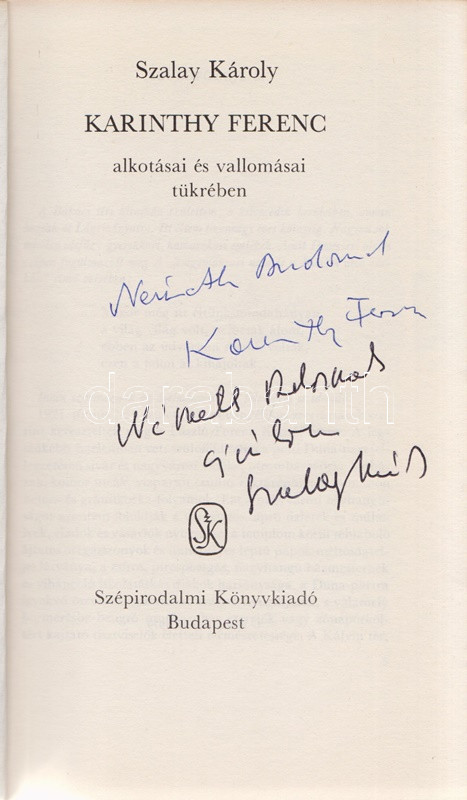 Szalay Károly
KARINTHY FERENC
alkotásai és vallomásai
tükrében
Németh Andornak
Karinthy Ferenc
Németh Andornak
Szalay Károly
darabanth
SzK
Szépirodalmi Könyvkiadó
Budapest